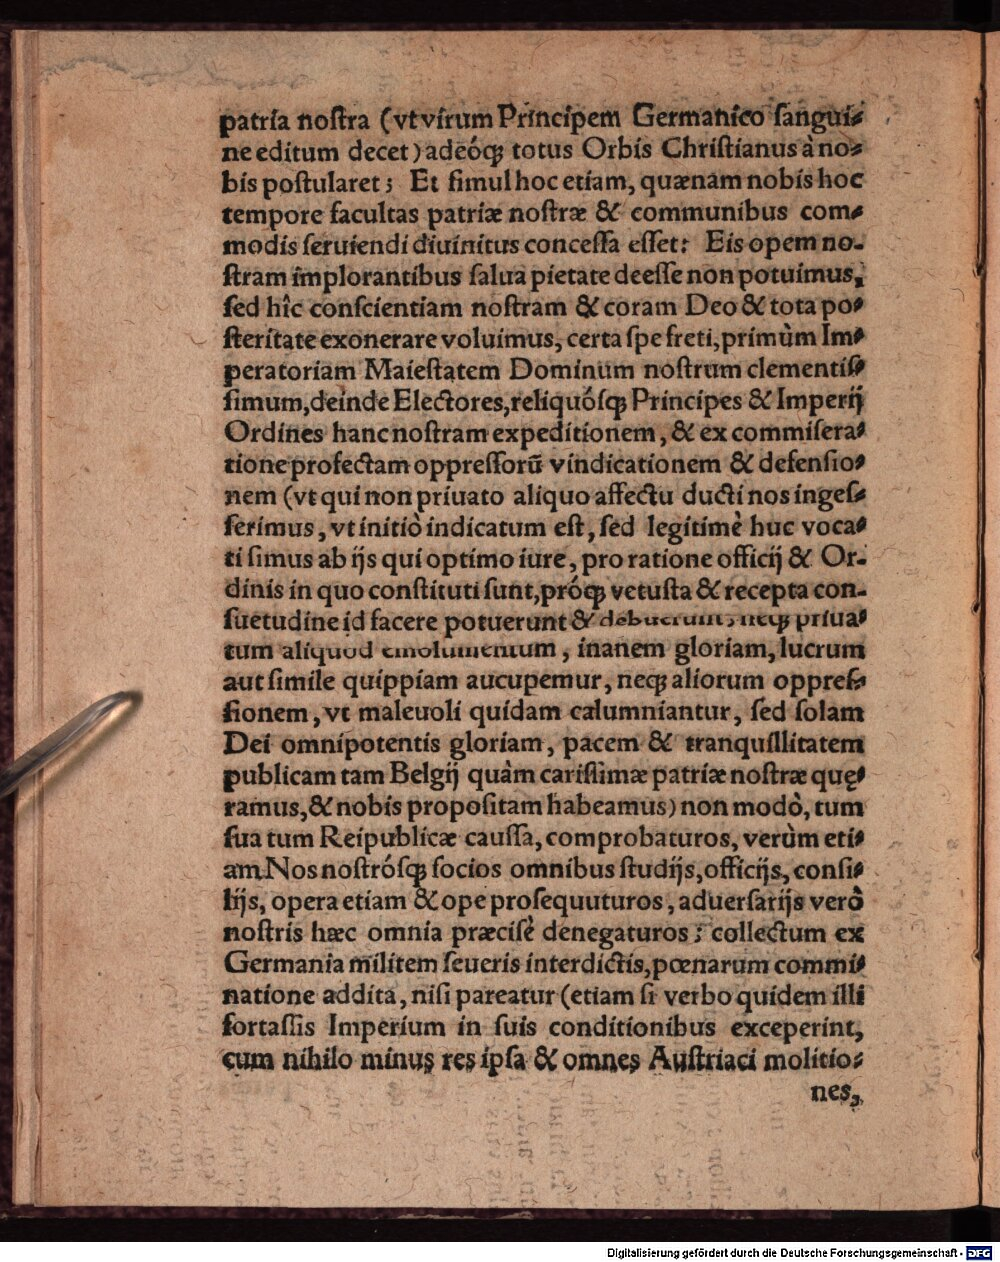 patria noſtra (vt virum Principem Germanico ſangui⸗
ne editum decet) adeóq́; totus Orbis Chriſtianus à no⸗
bis poſtularet; Et ſimul hoc etiam, quænam nobis hoc
tempore facultas patriæ noſtræ & communibus com⸗
modis ſeruiendi diuinitus conceſſa eſſet: Eis opem no-
ſtram implorantibus ſalua pietate deeſſe non potuimus,
ſed hîc conſcientiam noſtram & coram Deo & tota po⸗
ſteritate exonerare voluimus, certa ſpe freti, primùm Im⸗
peratoriam Maieſtatem Dominum noſtrum clementiſ⸗
ſimum, deinde Electores, reliquóſq; Principes & Imperij
Ordines hanc noſtram expeditionem, & ex commiſera⸗
tione profectam oppreſſorũ vindicationem & defenſio⸗
nem (vt qui non priuato aliquo affectu ducti nos ingeſ⸗
ſerimus, vt initiò indicatum eſt, ſed legitimè huc voca⸗
ti ſimus ab ijs qui optimo iure, pro ratione officij & Or-
dinis in quo conſtituti ſunt, próq; vetuſta & recepta con-
ſuetudine id facere potuerunt & debuerunt, neq; priua⸗
tum aliquod emolumentum, inanem gloriam, lucrum
aut ſimile quippiam aucupemur, neq; aliorum oppreſ⸗
ſionem, vt maleuoli quidam calumniantur, ſed ſolam
Dei omnipotentis gloriam, pacem & tranquillitatem
publicam tam Belgij quàm cariſſimæ patriæ noſtræ quę⸗
ramus, & nobis propoſitam habeamus) non modò, tum
ſua tum Reipublicæ cauſſa, comprobaturos, verùm eti⸗
am Nos noſtróſq; ſocios omnibus ſtudijs, officijs, conſi⸗
lijs, opera etiam & ope proſequuturos, aduerſarijs verò
noſtris hæc omnia præcisè denegaturos; collectum ex
Germania militem ſeueris interdictis, pœnarum commi⸗
natione addita, niſi pareatur (etiam ſi verbo quidem illi
fortaſſis Imperium in ſuis conditionibus exceperint,
cum nihilo minus res ipſa & omnes Auſtriaci molitio⸗
nes,
Digitalisierung gefördert durch die Deutsche Forschungsgemeinschaft - DFG